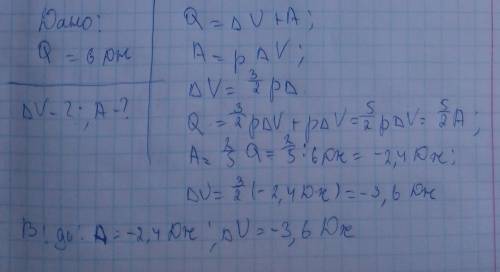 Дано:
Q = 6 Дж
ΔV - ?; A - ?
Q = ΔV + A;
A = pΔV;
ΔV = 3/2 pΔ
Q = 3/2 pΔV + pΔV = 5/2 pΔV = 5/2 A;
A = 2/5 Q = 2/5 · 6 Дж = -2,4 Дж;
ΔV = 3/2 (-2,4 Дж) = -3,6 Дж
A = -2,4 Дж; ΔV = -3,6 Дж